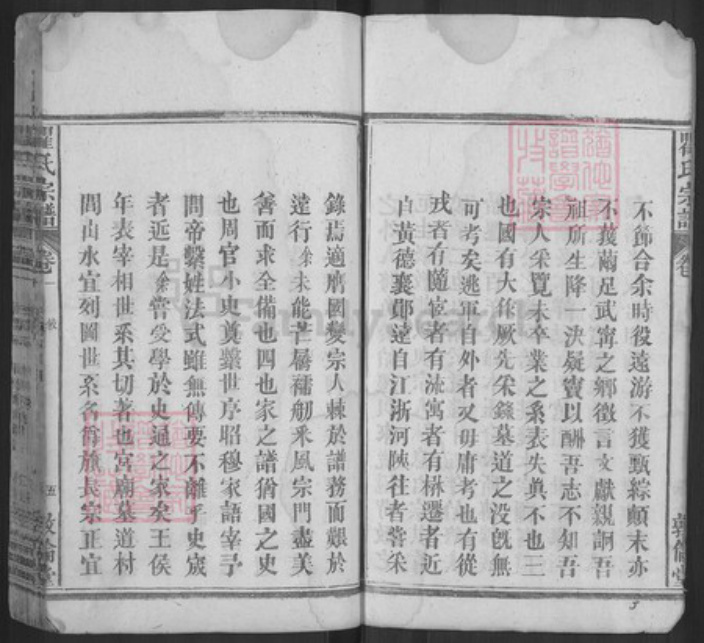 不節合余時役遠游不獲甄綜顛末亦
不獲繭足武寧之鄉徵言文獻親詗吾
祖所生降一決疑竇以酬吾志不知吾
宗人采覽未卒業之系表失眞不也三
也國有大作厥先采錄墓道之没旣無
可考矣逃軍自外者又毋庸考也有從
戎者有隨宦者有流寓者有栟遷者近
自黃德襄鄖遠自江浙河陝往者嘗采
錄焉適膺國變宗人棘於譜務而艱於
遠行余未能芒屩襦舠采風宗門盡美
善而求全備也四也家之譜猶國之史
也周官小史奠繫世序昭穆家語宰予
問帝繫姓法式雖無傳要不離乎史宬
者近是余嘗受學於史通之家矣王侯
年表宰相世系其切著也宮廟墓道村
閭山水宜列圖世系名諱旗長宗正宜
氏宗譜
卷一
五
敦倫堂
氏宗譜
敦倫堂
FamilySearch